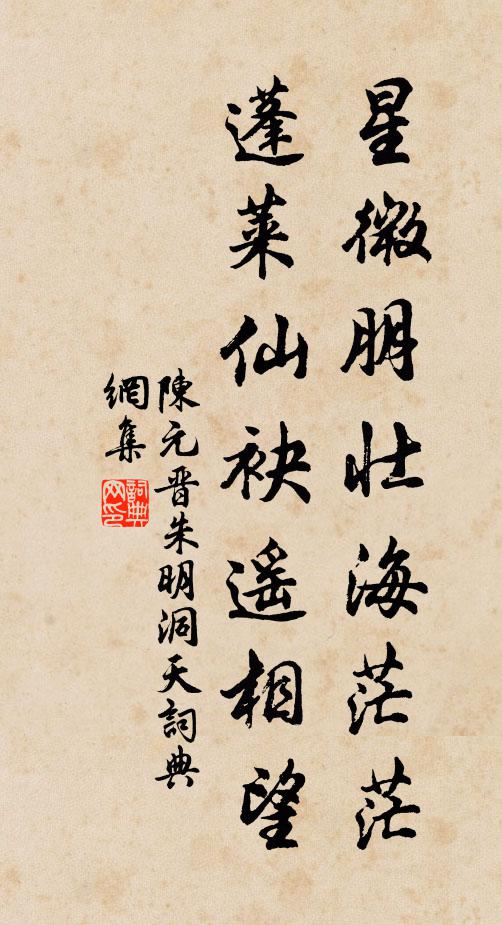 星微明壮海茫茫
蓬莱仙袂遥相望
陳元晋朱明洞天詞典
網集
詞典
网印